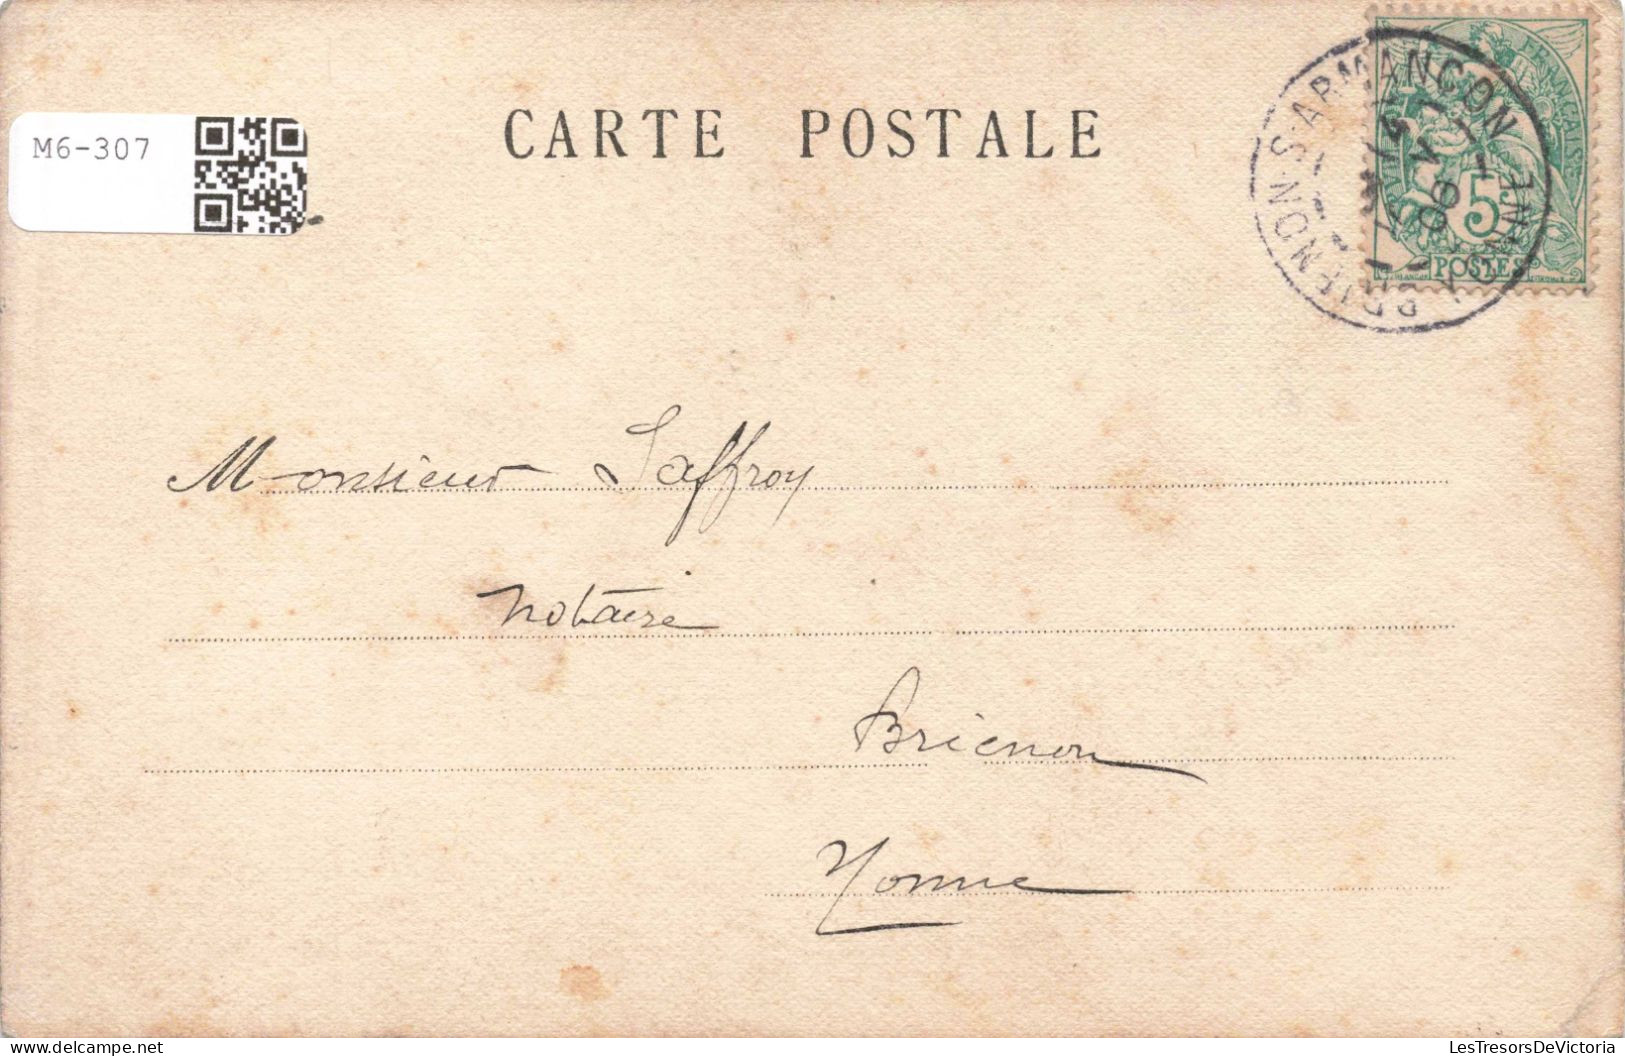 M6-307
CARTE POSTALE
BRIENON-S-ARMANÇON
YONNE
06
FRANÇAISE
5
POSTES
Monsieur Saffroy
Notaire
Brienon
Yonne
LesTresorsDeVictoria
www.delcampe.net